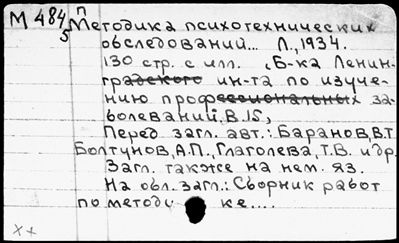 М 484 п
5
Методика психотехнических
обследований... Л., 1934.
130 стр. с илл. (Б-ка Ленин-
градского ин-та по изуче-
нию профессиональных за-
болеваний, В.15,
Перед загл. авт.: Баранов, В.Т.
Болтунов, А.П., Глаголева, Т.В. и др.
Загл. также на нем. яз.
На обл. загл.: Сборник работ
по методике....
хх